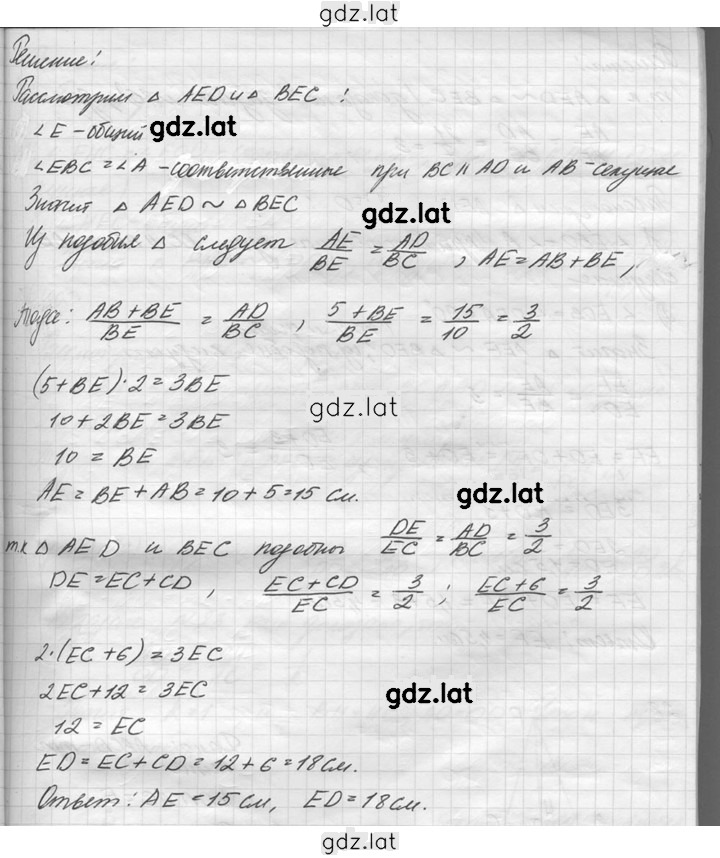 gdz.lat
Решение:
Рассмотрим △ AED и △ BEC :
∠E - общий gdz.lat
∠EBC = ∠A - соответственные при BC || AD и AB - секущие
Значит △ AED ~ △ BEC
gdz.lat
Из подобия △ следует AE/BE = AD/BC , AE = AB + BE,
тогда: (AB + BE)/BE = AD/BC , (5 + BE)/BE = 15/10 = 3/2
(5 + BE) · 2 = 3BE
gdz.lat
10 + 2BE = 3BE
10 = BE
AE = BE + AB = 10 + 5 = 15 см.
gdz.lat
т.к △ AED и BEC подобны DE/EC = AD/BC = 3/2
DE = EC + CD , (EC + CD)/EC = 3/2 ; (EC + 6)/EC = 3/2
2 · (EC + 6) = 3EC
2EC + 12 = 3EC
gdz.lat
12 = EC
ED = EC + CD = 12 + 6 = 18 см.
Ответ: AE = 15 см, ED = 18 см.
gdz.lat